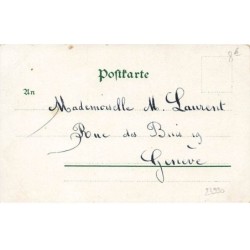 8€
Postkarte
An
Mademoiselle M. Laurent
Rue des Bains 19
Genève